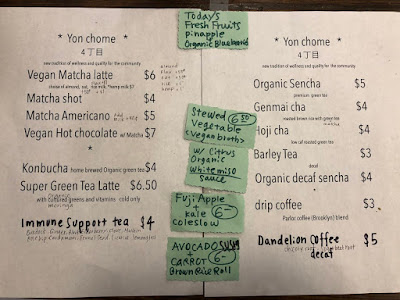 * Yon chome *
4丁目
new tradition of wellness and quality for the community
Vegan Matcha latte $6
choice of almond, oat, hemp milk $7
Matcha shot $4
Matcha Americano $5
Vegan Hot chocolate w/ Matcha $7
Konbucha home brewed Organic green tea $4
Super Green Tea Latte $6.50
with cultured greens and vitamins cold only
moringa
Immune Support tea $4
Today's
Fresh Fruits
pinapple
Organic Blueberries
Stewed 6.50
Vegetable
<vegan broth>
w/ Citrus
Organic
White miso
sauce
Fuji Apple
+
kale 6-
coleslow
AVOCADO SUSHI
+ 6-
CARROT
Brown Rice Roll
* Yon chome *
4丁目
new tradition of wellness and quality for the community
Organic Sencha $5
premium green tea
Genmai cha $4
roasted brown rice with green tea
Hoji cha $4
low caf roasted green tea
Barley Tea $3
decaf
Organic decaf sencha $4
drip coffee $3
Parlor coffee (Brooklyn) blend
Dandelion Coffee $5
decaf